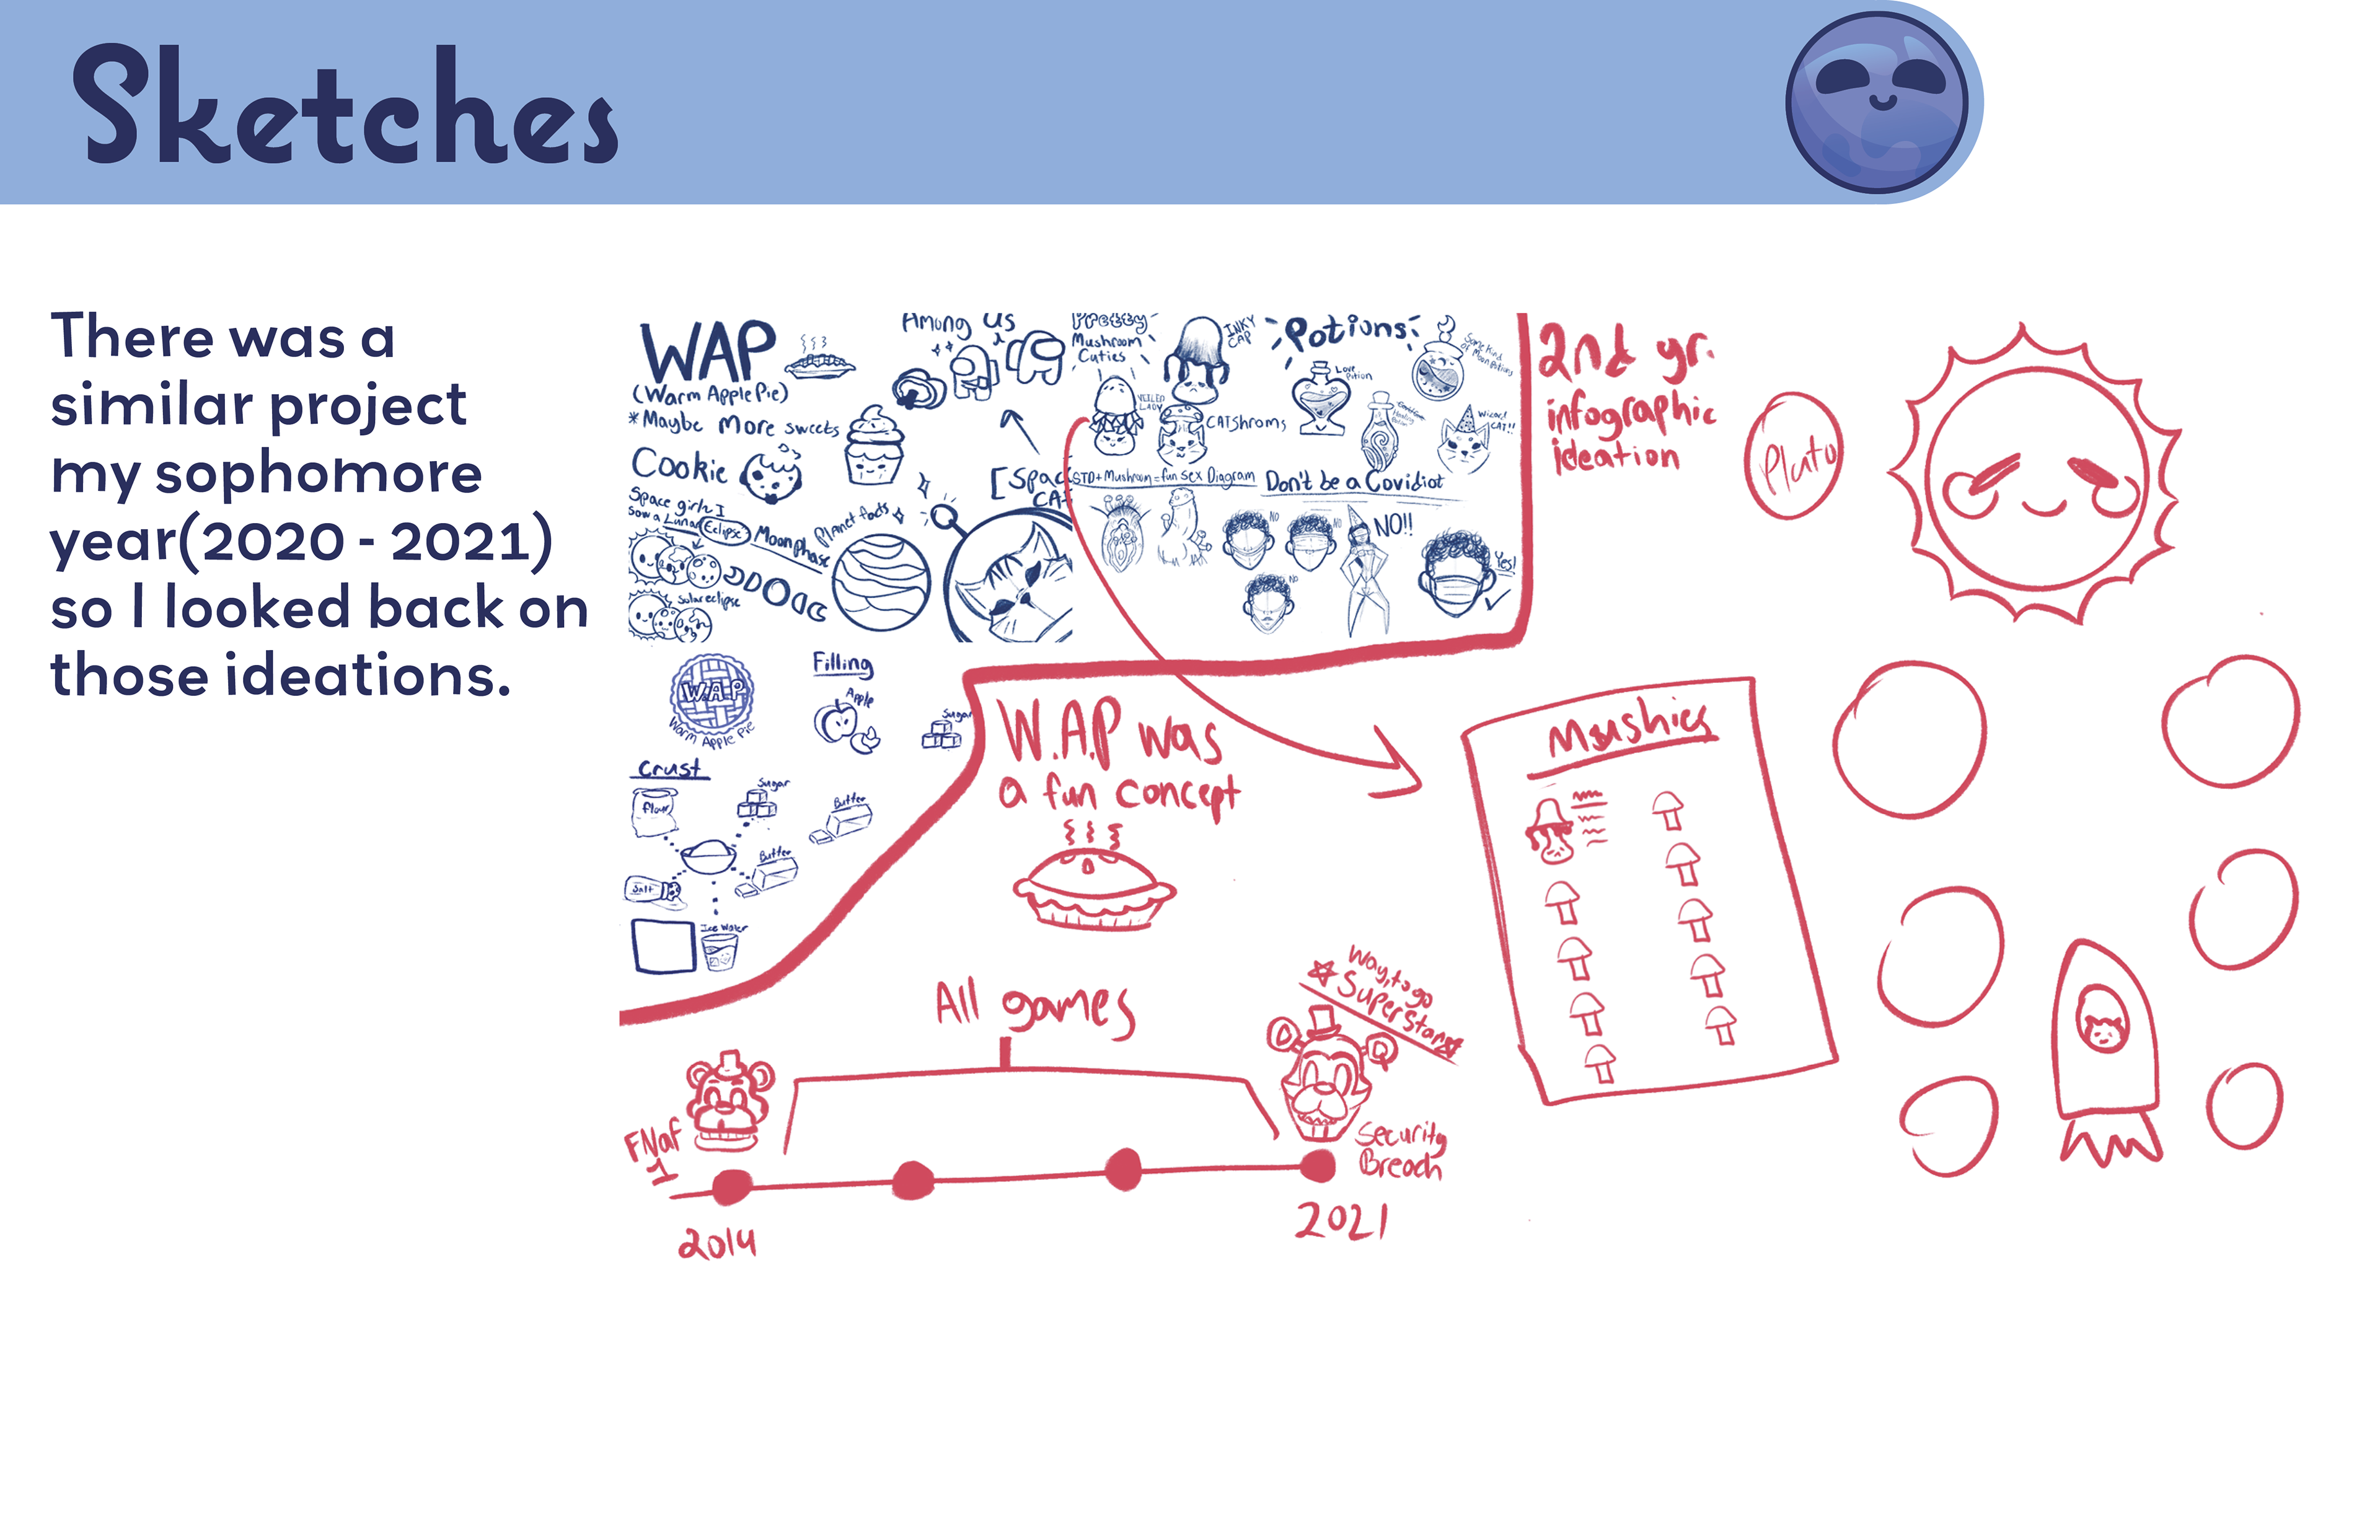 Sketches
There was a
similar project
my sophomore
year(2020 - 2021)
so I looked back on
those ideations.
WAP
(Warm Apple Pie)
*Maybe More sweets
Cookie
Space girl I
Sow a Lunar Eclipse
Moon phase
Planet facts
Solar eclipse
Among Us
[Spac
CA
Pretty
Mushroom
Cuties
INKY
CAP
VEILED
LADY
CATShroms
Potions
Love
Potion
Some kind
of Moon Potions
Wizard
CAT!!
STD+Mushroom=fun Sex Diagram
Don't be a Covidiot
NO
NO
NO!!
NO
Yes!
2nd yr.
infographic
ideation
Pluto
W.A.P
Warm Apple Pie
Filling
Apple
Sugar
Crust
flour
Sugar
Butter
Butter
Salt
Ice Water
W.A.P was
a fun concept
Mushies
All games
Way to go
Superstar
FNaf
1
Security
Breach
2014
2021